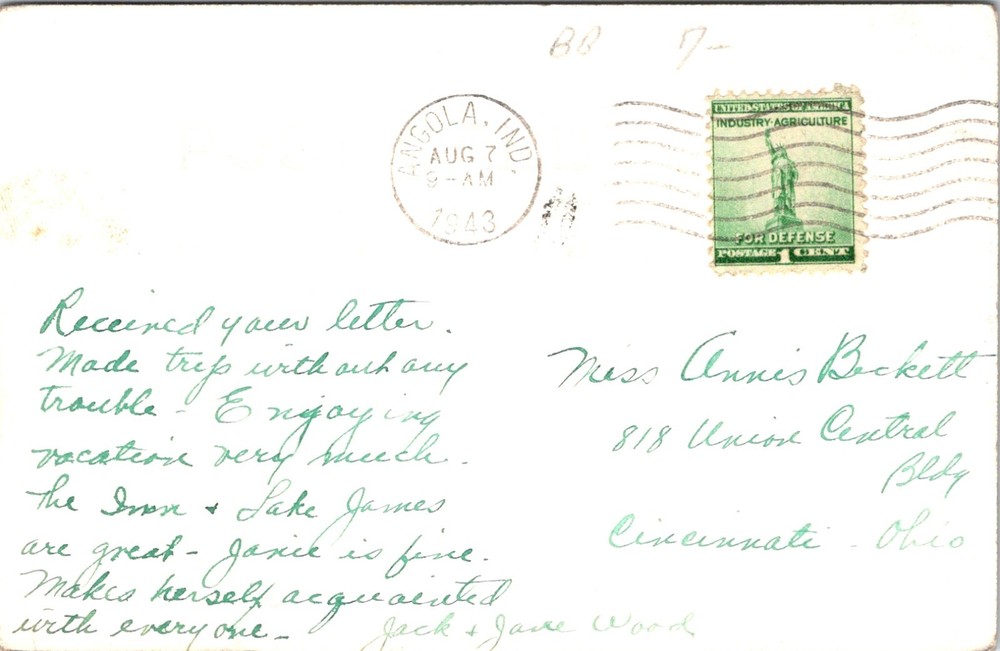 BB 7-
ANGOLA, IND.
AUG 7
9-AM
1943
UNITED STATES OF AMERICA
INDUSTRY·AGRICULTURE
FOR DEFENSE
POSTAGE 1 CENT
Received your letter.
Made trip without any
trouble - Enjoying
vacation very much.
The Inn + Lake James
are great - Janie is fine.
Makes herself acquainted
with everyone -
Jack + Jane Wood
Miss Annis Beckett
818 Union Central
Bldg
Cincinnati - Ohio